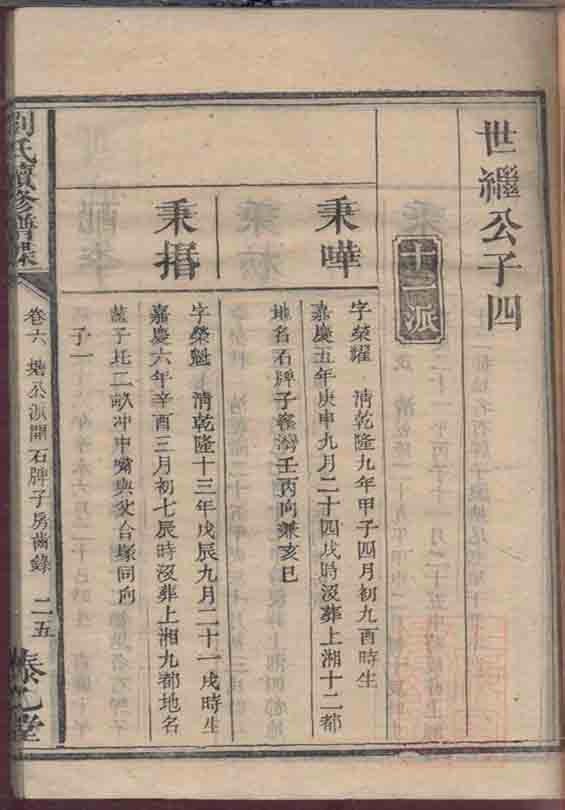 世繼公子四
十二派
秉曄
字榮耀 清乾隆九年甲子四月初九酉時生
嘉慶五年庚申九月二十四戌時沒葬上湘十二都
地名石牌子塋灣壬丙向兼亥巳
秉揩
字榮魁 清乾隆十三年戊辰九月二十一戌時生
嘉慶六年辛酉三月初七辰時沒葬上湘九都地名
子坵二畝冲中嘴與父合塚同向
子一
劉氏續修譜牒
卷六 公派開石牌子房齒錄 二五
藜乙堂